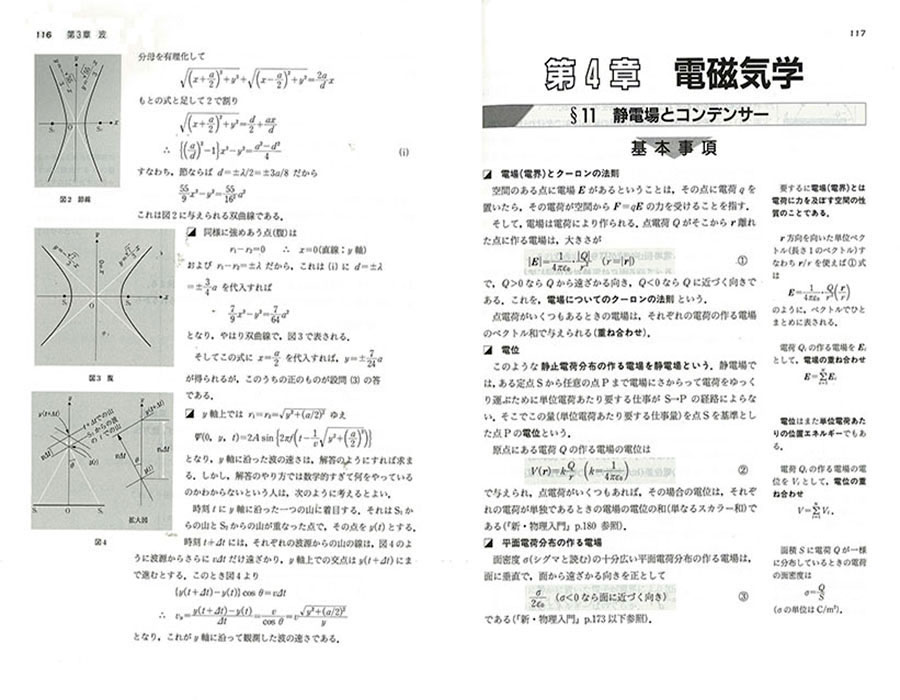 116 第3章 波
図2 節線
図3 腹
拡大図
図4
分母を有理化して
√((x+a/2)²+y²)+√((x-a/2)²+y²)=2a/d x
もとの式と足して2で割り
√((x+a/2)²+y²)=d/2+ax/d
∴ {(a/d)²-1}x²-y²=(a²-d²)/4 (i)
すなわち，節ならば d=±λ/2=±3a/8 だから
55/9 x²-y²=55/16² a²
これは図2に与えられる双曲線である。
同様に強めあう点(腹)は
r₁-r₂=0 ∴ x=0(直線：y 軸)
および r₁-r₂=±λ だから，これは(i)に d=±λ
=±3/4 a を代入すれば
7/9 x²-y²=7/64 a²
となり，やはり双曲線で，図3で表される。
そしてこの式に x=a/2 を代入すれば，y=±7/24 a
が得られるが，このうちの正のものが設問(3)の答
である。
y 軸上では r₁=r₂=√(y²+(a/2)²) ゆえ
Ψ(0, y, t)=2A sin{2πf(t-1/v √(y²+(a/2)²))}
となり，y 軸に沿った波の速さは，解答のようにすれば求ま
る。しかし，解答のやり方では数学的すぎて何をやっている
のかわからないという人は，次のように考えるとよい。
時刻 t に y 軸に沿った一つの山に着目する。それは S₁か
らの山と S₂からの山が重なった点で，その点を y(t)とする。
時刻 t+Δt には，それぞれの波源からの山の線は，図4のよ
うに波源からさらに vΔt だけ遠ざかり，y 軸上での交点は y(t+Δt)にま
で進むとする。このとき図4より
{y(t+Δt)-y(t)} cos θ=vΔt
∴ v_y=(y(t+Δt)-y(t))/Δt=v/cos θ=v √(y²+(a/2)²)/y
となり，これが y 軸に沿って観測した波の速さである。
117
第4章 電磁気学
§11 静電場とコンデンサー
基本事項
電場(電界)とクーロンの法則
空間のある点に電場 E があるということは，その点に電荷 q を
置いたら，その電荷が空間から F=qE の力を受けることを指す。
そして，電場は電荷により作られる。点電荷 Q がそこから r 離れ
た点に作る電場は，大きさが
|E|=1/4πε₀・|Q|/r² (r=|r|) ①
で，Q>0 なら Q から遠ざかる向き，Q<0 なら Q に近づく向きで
ある。これを，電場についてのクーロンの法則 という。
点電荷がいくつもあるときの電場は，それぞれの電荷の作る電場
のベクトル和で与えられる(重ね合わせ)。
電位
このような静止電荷分布の作る電場を静電場という。静電場で
は，ある定点 S から任意の点 P まで電場にさからって電荷をゆっく
り運ぶために単位電荷あたり要する仕事が S→P の経路によらな
い。そこでこの量(単位電荷あたり要する仕事量)を点 S を基準とし
た点 P の電位という。
原点にある電荷 Q の作る電場の電位は
V(r)=k Q/r (k=1/4πε₀) ②
で与えられ，点電荷がいくつもあれば，その場合の電位は，それぞ
れの電荷が単独であるときの電場の電位の和(単なるスカラー和)で
ある(『新・物理入門』p.180 参照)。
平面電荷分布の作る電場
面密度 σ(シグマと読む)の十分広い平面電荷分布の作る電場は，
面に垂直で，面から遠ざかる向きを正として
σ/2ε₀ (σ<0 なら面に近づく向き) ③
である(『新・物理入門』p.173 以下参照)。
要するに電場(電界)とは
電荷に力を及ぼす空間の性
質のことである。
r 方向を向いた単位ベク
トル(長さ1のベクトル)す
なわち r/r を使えば①式
は
E=1/4πε₀・Q/r²(r/r)
のように，ベクトルでひと
まとめに表される。
電荷 Qᵢ の作る電場を Eᵢ
として，電場の重ね合わせ
E=Σ Eᵢ
電位はまた単位電荷あた
りの位置エネルギーでもあ
る。
電荷 Qᵢ の作る電場の電
位を Vᵢ として，電位の重
ね合わせ
V=Σ Vᵢ
面積 S に電荷 Q が一様
に分布しているときの電荷
の面密度は
σ=Q/S
(σ の単位は C/m²)。